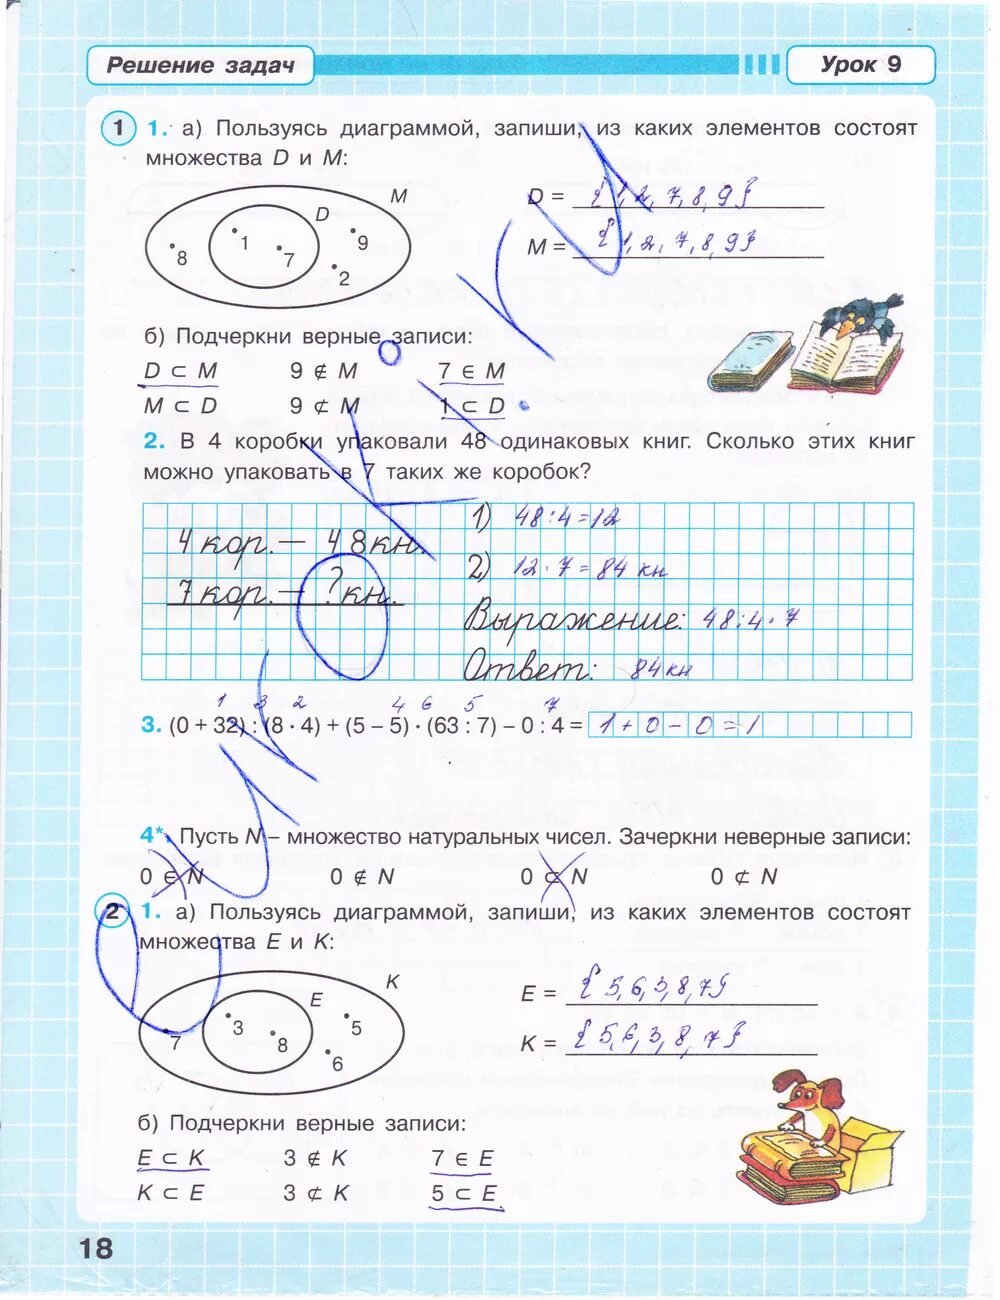 Решение задач
Урок 9
1 1. а) Пользуясь диаграммой, запиши, из каких элементов состоят
множества D и M:
M
D
1
7
8
9
2
D = {1, 2, 7, 8, 9}
M = {1, 2, 7, 8, 9}
б) Подчеркни верные записи:
D ⊂ M 9 ∉ M 7 ∈ M
M ⊂ D 9 ⊄ M 1 ⊂ D
2. В 4 коробки упаковали 48 одинаковых книг. Сколько этих книг
можно упаковать в 7 таких же коробок?
4 кор. — 48 кн.
7 кор. — ? кн.
1) 48:4=12
2) 12·7=84 кн
Выражение: 48:4·7
Ответ: 84 кн
1 3 2 4 6 5 7
3. (0 + 32) : (8 · 4) + (5 – 5) · (63 : 7) – 0 : 4 = 1 + 0 – 0 = 1
4*. Пусть N – множество натуральных чисел. Зачеркни неверные записи:
0 ∈ N 0 ∉ N 0 ⊂ N 0 ⊄ N
2 1. а) Пользуясь диаграммой, запиши, из каких элементов состоят
множества E и K:
K
E
3
8
7
5
6
E = {5, 6, 3, 8, 7}
K = {5, 6, 3, 8, 7}
б) Подчеркни верные записи:
E ⊂ K 3 ∉ K 7 ∈ E
K ⊂ E 3 ⊄ K 5 ⊂ E
18